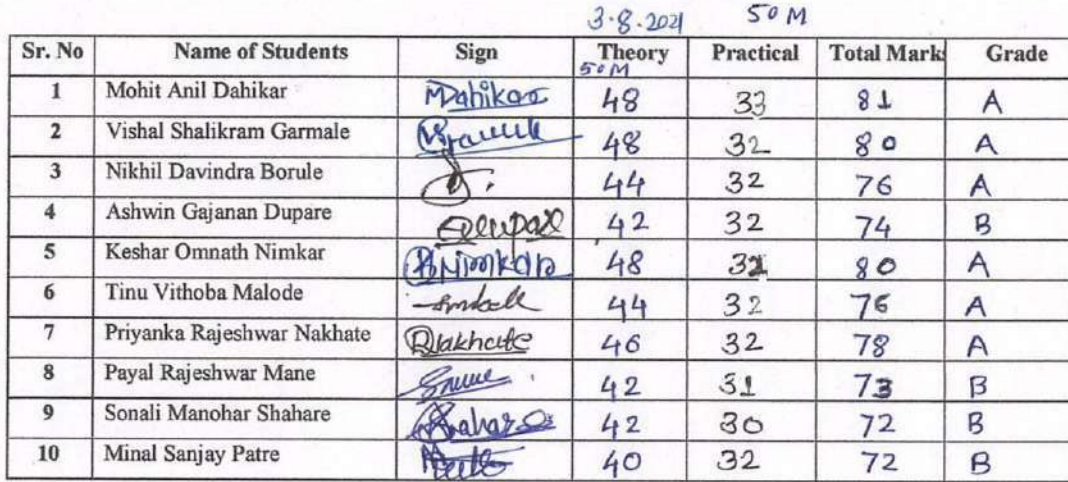 3.8.2021 50 M
Sr. No Name of Students Sign Theory Practical Total Marks Grade
50M
1 Mohit Anil Dahikar MDahikar 48 33 81 A
2 Vishal Shalikram Garmale 48 32 80 A
3 Nikhil Davindra Borule 44 32 76 A
4 Ashwin Gajanan Dupare 42 32 74 B
5 Keshar Omnath Nimkar KNimkar 48 32 80 A
6 Tinu Vithoba Malode 44 32 76 A
7 Priyanka Rajeshwar Nakhate PNakhate 46 32 78 A
8 Payal Rajeshwar Mane 42 31 73 B
9 Sonali Manohar Shahare 42 30 72 B
10 Minal Sanjay Patre 40 32 72 B